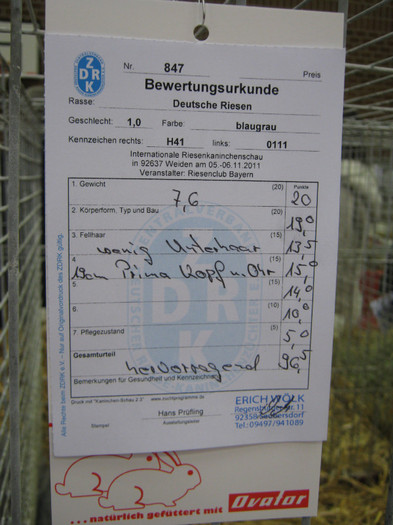 ZDRK
Nr. 847 Preis
Bewertungsurkunde
Rasse: Deutsche Riesen
Geschlecht: 1,0 Farbe: blaugrau
Kennzeichen rechts: H41 links: 0111
Internationale Riesenkaninchenschau
in 92637 Weiden am 05.-06.11.2011
Veranstalter: Riesenclub Bayern
1. Gewicht (20) Punkte
7,6 20
2. Körperform, Typ und Bau (20) 19,0
3. Fellhaar (15)
wenig Unterhaar 13,5
4. (15)
19cm Prima Kopf u. Ohr 15,0
5. (15) 14,0
6. (10) 10,0
7. Pflegezustand (5) 5,0
Gesamturteil
hervorragend 96,5
Bemerkungen für Gesundheit und Kennzeichen
Alle Rechte beim ZDRK e.V. – Nur auf Originalvordruck des ZDRK gültig.
Druck mit "Kaninchen-Schau 2.0"
Hans Prüfling
Stempel
ERICH WÖLK
Tel.: 09497/941089
...natürlich gefüttert mit Ovator